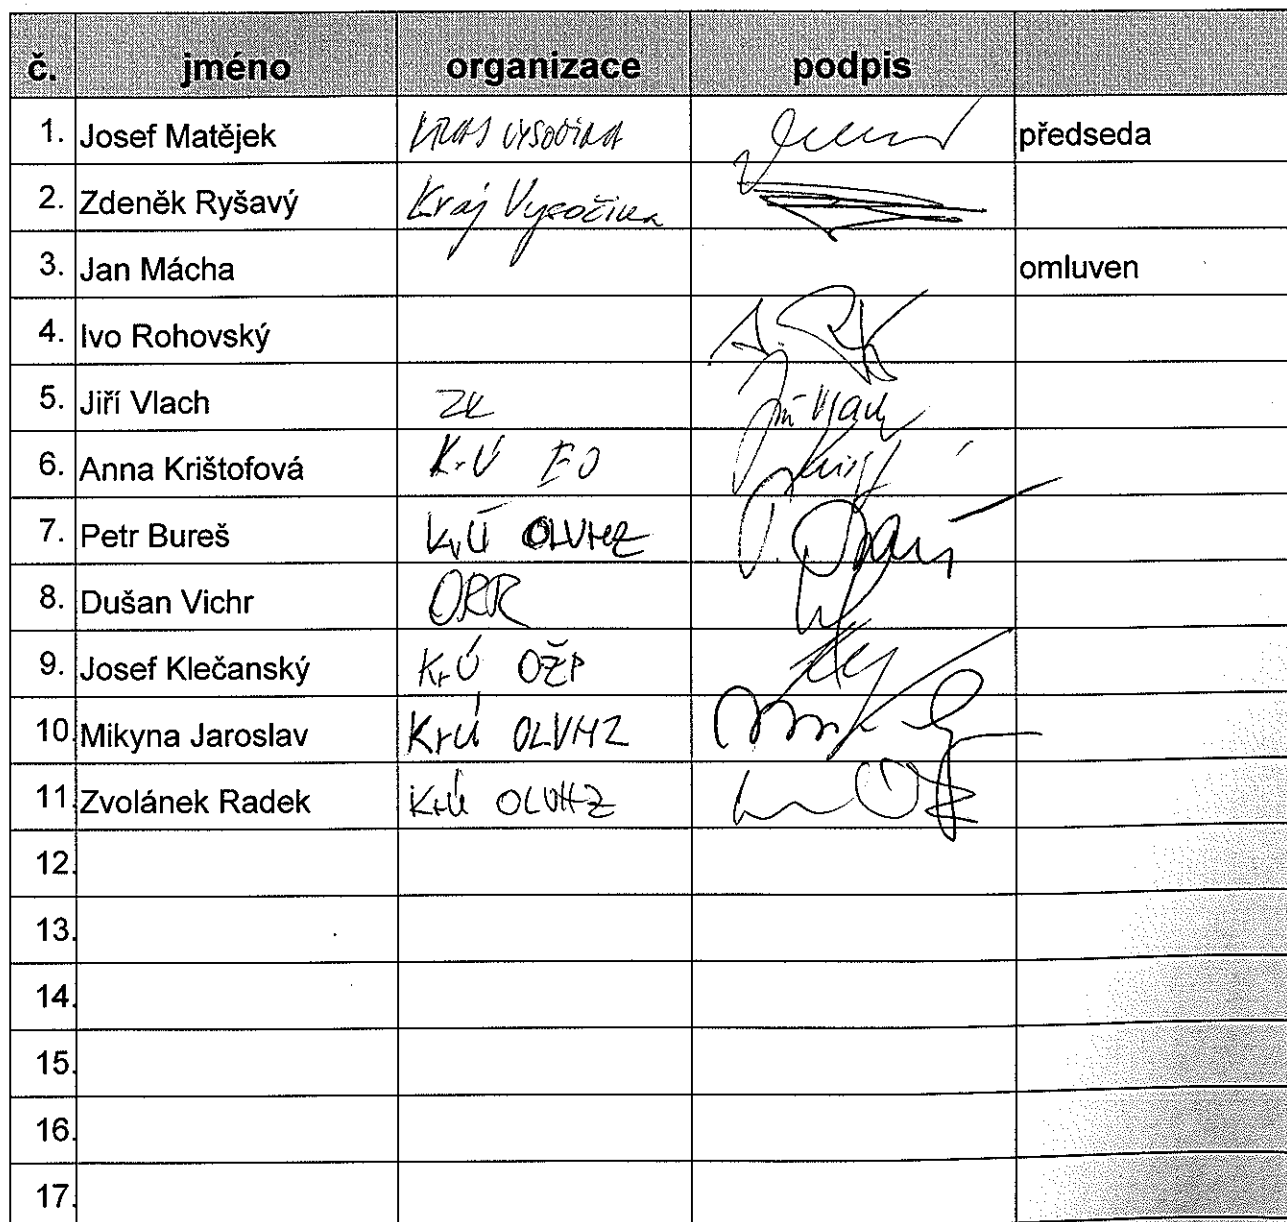 č. jméno organizace podpis
1. Josef Matějek KRAJ VYSOČINA předseda
2. Zdeněk Ryšavý Kraj Vysočina
3. Jan Mácha omluven
4. Ivo Rohovský
5. Jiří Vlach ZK Jiří Vlach
6. Anna Krištofová KrÚ EO
7. Petr Bureš KrÚ OLVHZ
8. Dušan Vichr ORR
9. Josef Klečanský KrÚ OŽP
10. Mikyna Jaroslav KrÚ OLVHZ
11. Zvolánek Radek KrÚ OLVHZ
12.
13.
14.
15.
16.
17.